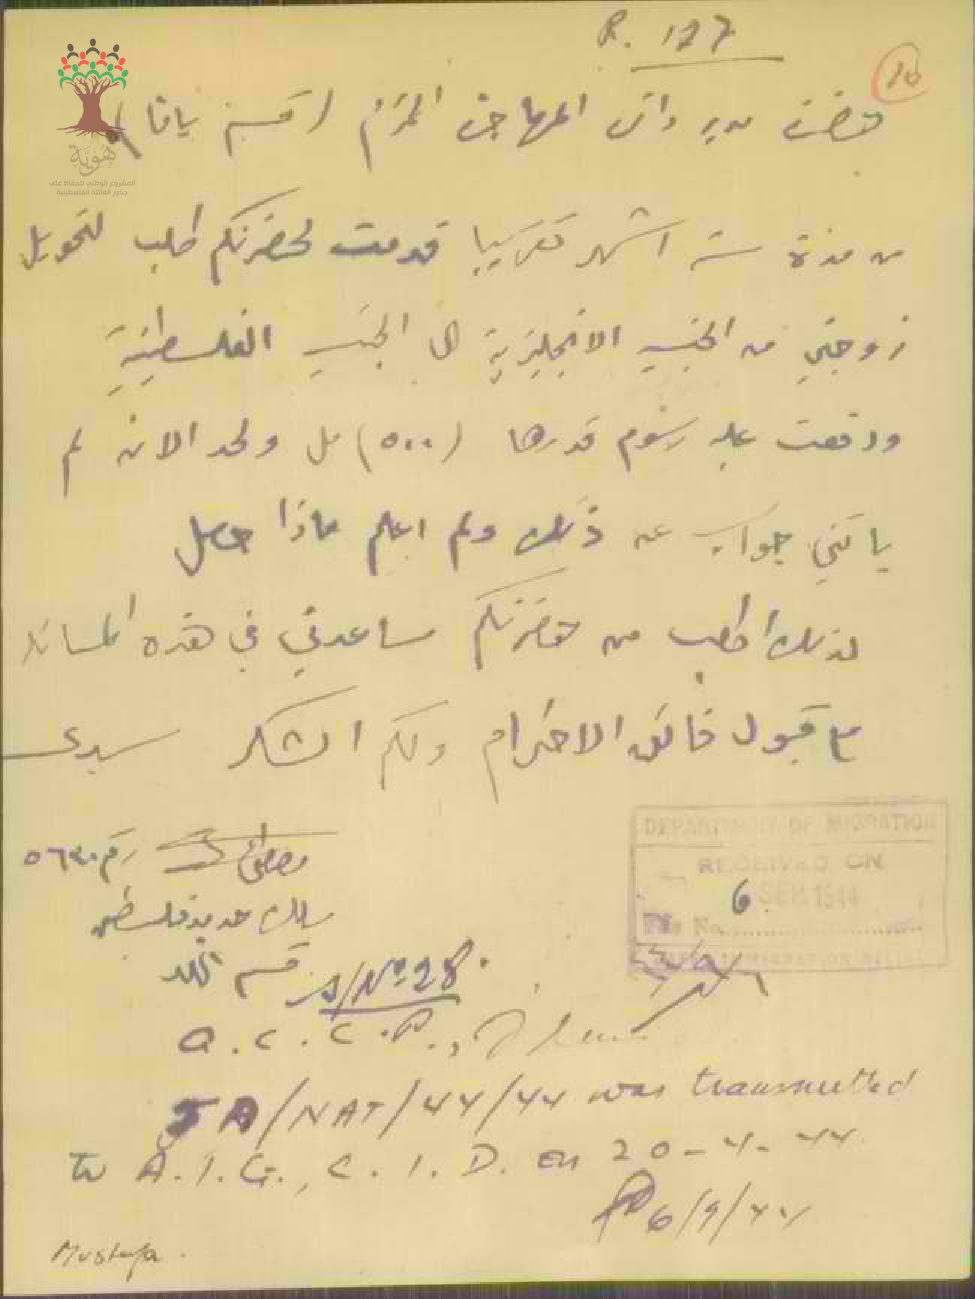 R. 177
10
حضرة مدير دائرة المهاجرة المحترم (قسم يافا)
هَوِيّة
المشروع الوطني للحفاظ على
جذور العائلة الفلسطينية
من مدة ستة اشهر تقريبا قدمت لحضرتكم طلب لتحويل
زوجتي من الجنسية الانجليزية الى الجنسية الفلسطينية
ودفعت عليه رسوم قدرها (٥٠٠) مل ولحد الان لم
ياتني جواب عن ذلك ولم اعلم ماذا حصل
لذلك اطلب من حضرتكم مساعدتي في هذه المسألة
مع قبول فائق الاحترام ولكم الشكر سيدي
DEPARTMENT OF MIGRATION
RECEIVED ON
6 SEP 1944
File No.
مصطفى رقم ٥٦٣٠
سكة حديد فلسطين
قسم اللد
S/No 28.
A.C.C.P.,
JA/NAT/44/44 was transmitted
to A.I.G., C.I.D. on 20-4-44.
6/9/44
Mustafa.